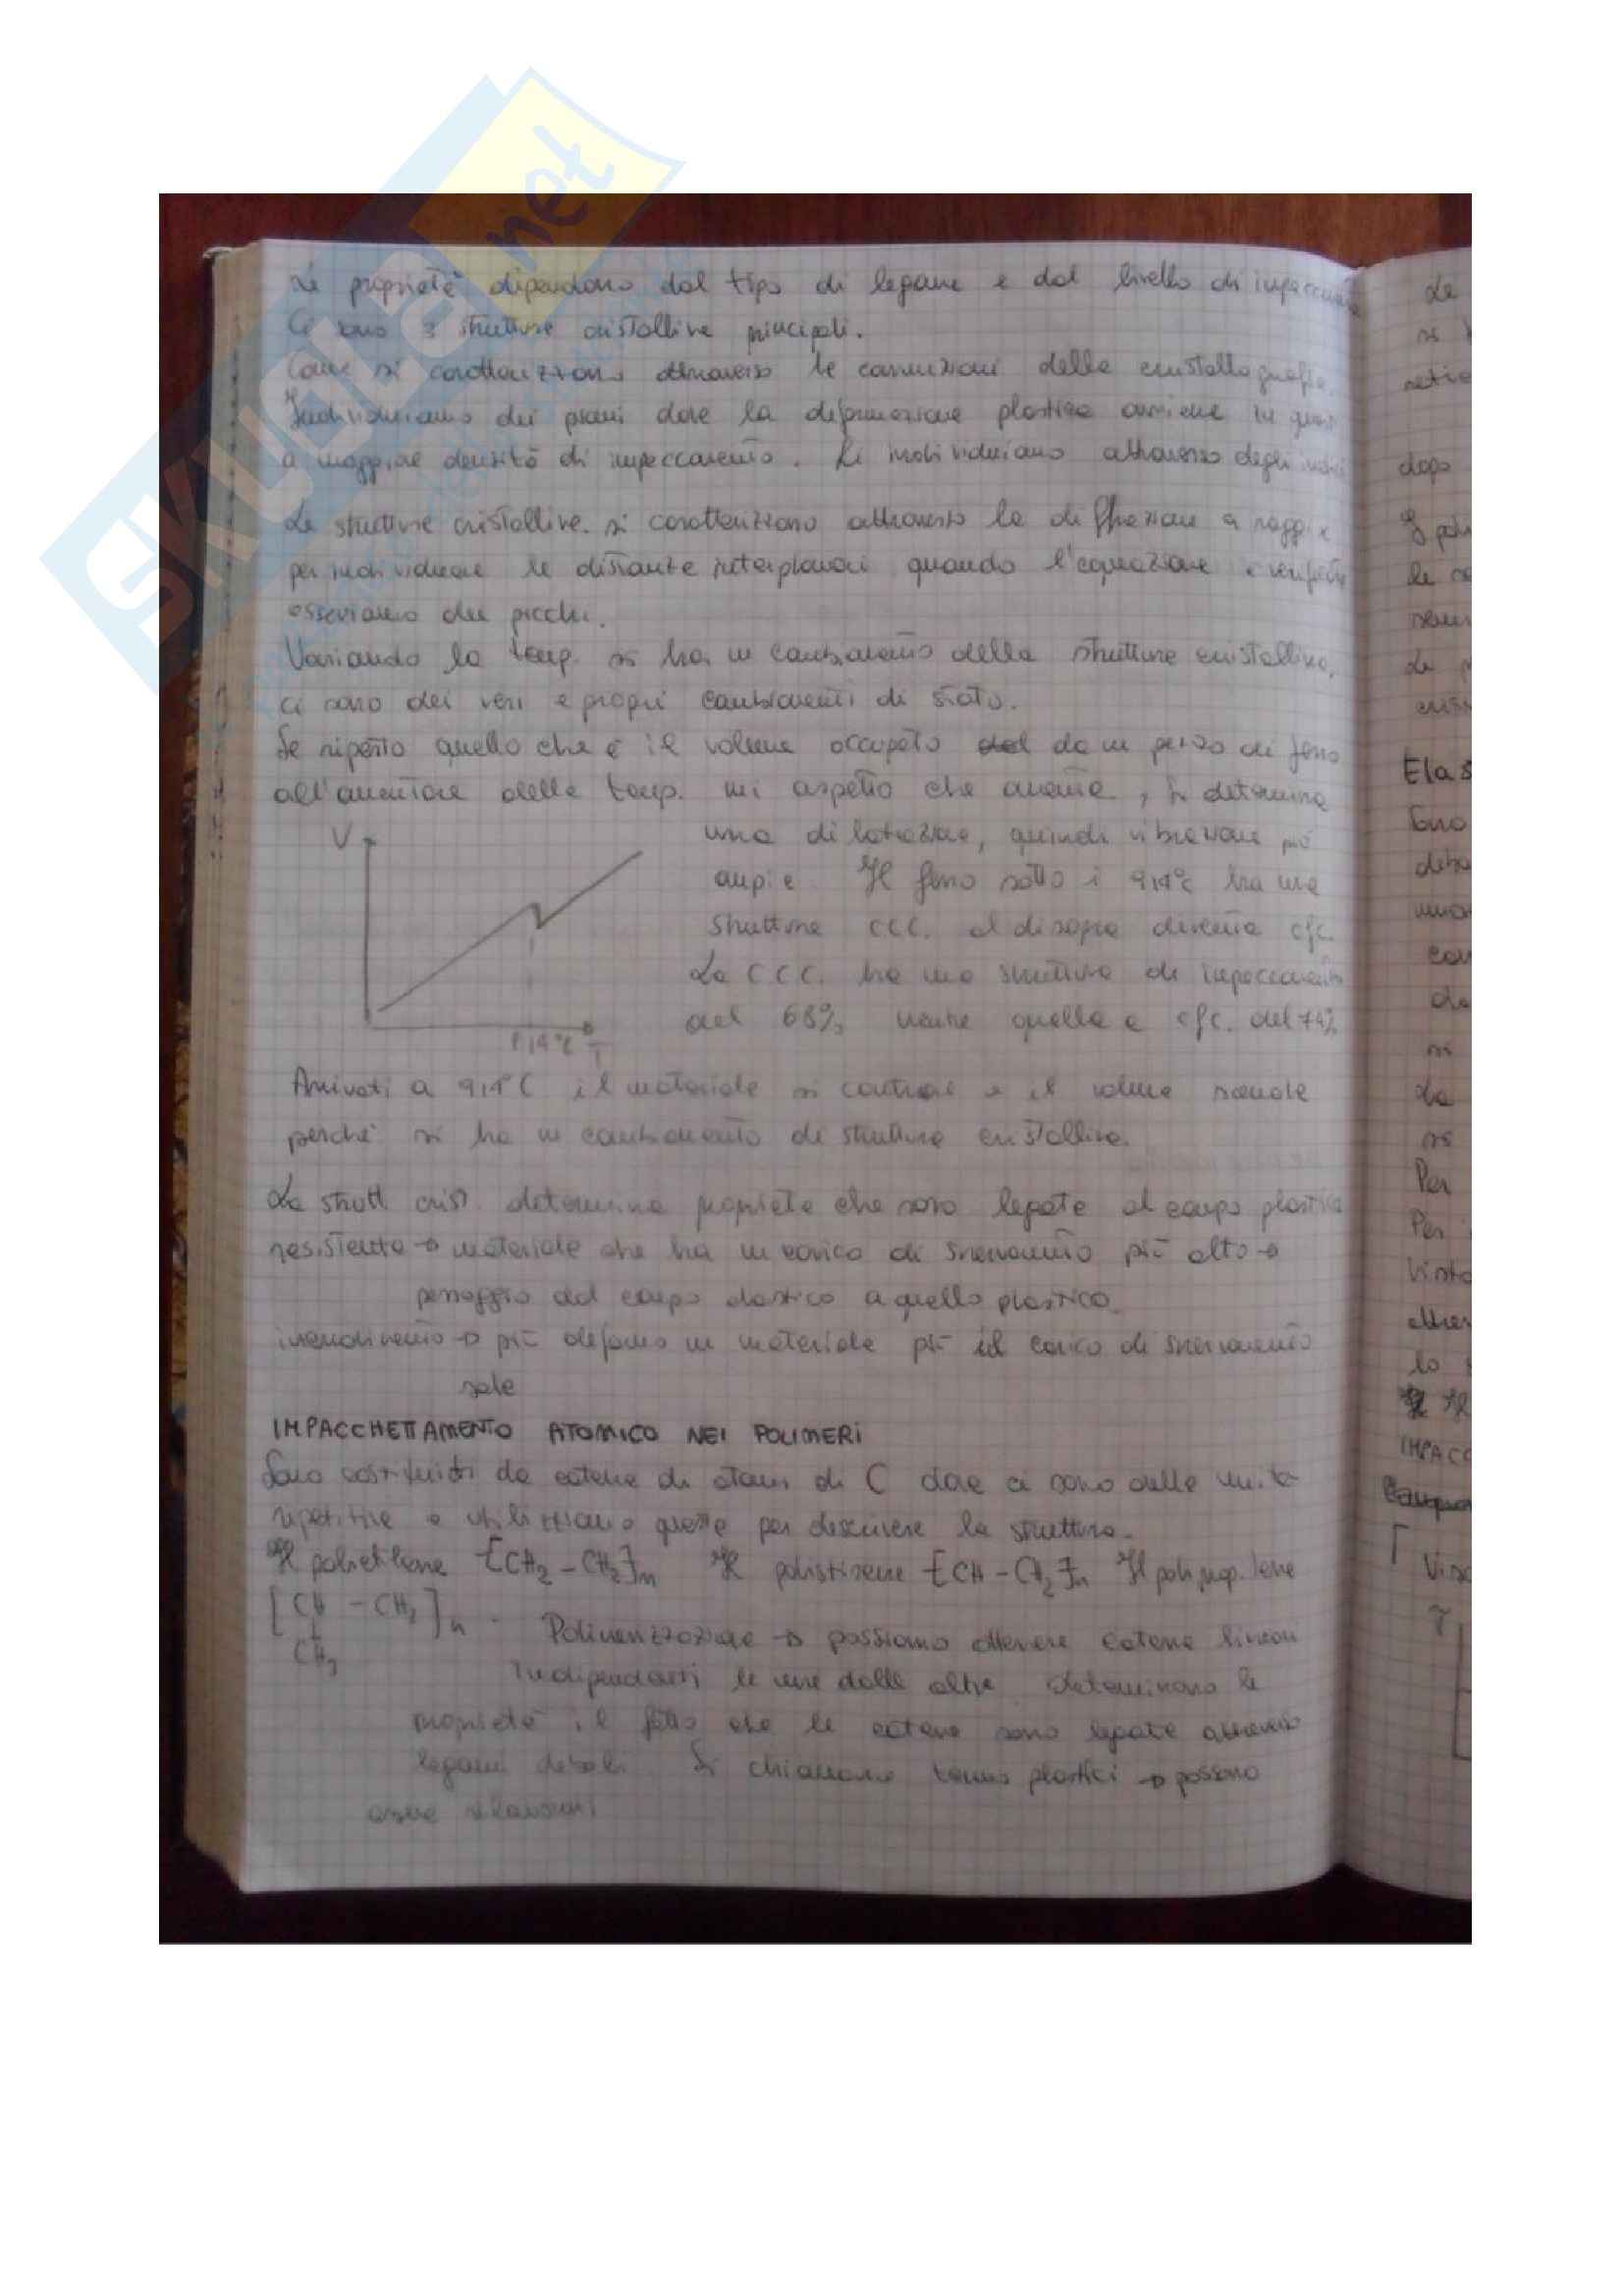 SKUOLA.net
Le proprietà dipendono dal tipo di legame e dal livello di impaccam
Ci sono 3 strutture cristalline principali.
Come si caratterizzano attraverso le convenzioni della cristallografia.
Individuiamo dei piani dove la deformazione plastica avviene in
a maggiore densità di impaccamento. Li individuiamo attraverso degli indici
Le strutture cristalline si caratterizzano attraverso la diffrazione a raggi x
per individuare le distanze interplanari quando l'equazione è verificata
osserviamo dei picchi.
Variando la temp. si ha un cambiamento della struttura cristallina,
ci sono dei veri e propri cambiamenti di stato.
Se riporto quello che è il volume occupato da un pezzo di ferro
all'aumentare della temp. mi aspetto che aumenta, si determina
V
una dilatazione, quindi vibrazioni più
ampie Il ferro sotto i 914°C ha una
struttura CCC. al disopra diventa cfc.
La CCC. ha una struttura di impaccamento
del 68% mentre quella a cfc. del 74%
914°C T
Arrivati a 914°C il materiale si contrae e il volume scende
perché si ha un cambiamento di struttura cristallina.
La strutt crist. determina proprietà che sono legate al campo plastico
resistenza → materiale che ha un carico di snervamento più alto →
passaggio dal campo elastico a quello plastico.
incrudimento → più deformo un materiale più il carico di snervamento
sale
IMPACCHETTAMENTO ATOMICO NEI POLIMERI
Sono costituiti da catene di atomi di C dove ci sono delle unità
ripetitive e utilizziamo queste per descrivere la struttura.
Il polietilene [CH2-CH2]n Il polistirene [CH-CH2]n Il polipropilene
[CH-CH2]n.
CH3
Polimerizzazione → possiamo ottenere catene lineari
Indipendenti le une dalle altre determinano le
proprietà il fatto che le catene sono legate attraverso
legami deboli Si chiamano termo plastici → possono
essere